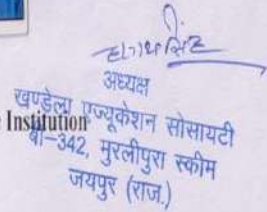 अध्यक्ष
खण्डेला एज्यूकेशन सोसायटी
e Institution
बी-342, मुरलीपुरा स्कीम
जयपुर (राज.)